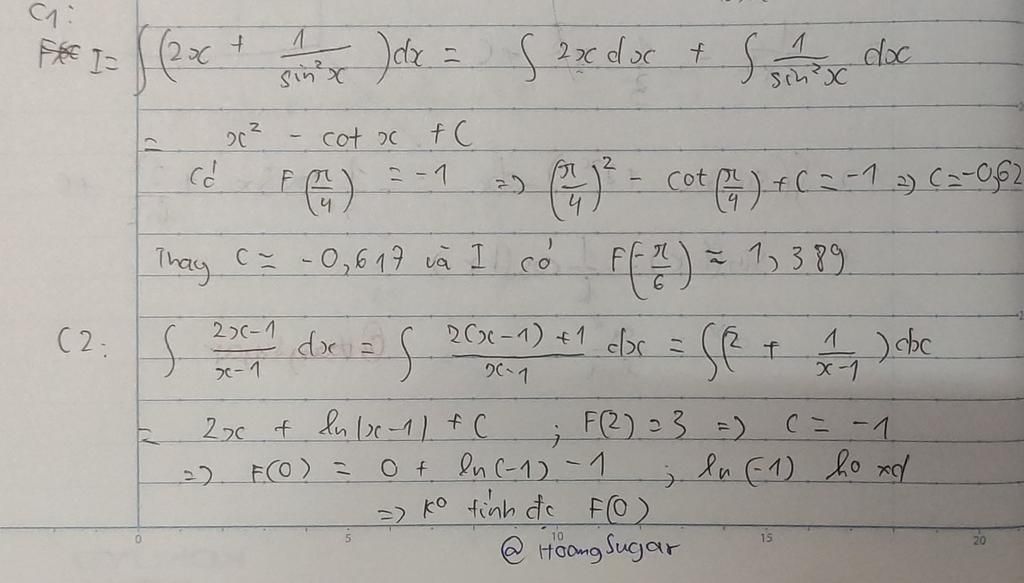 C1:
I = ∫(2x + 1/sin²x)dx = ∫ 2x dx + ∫ 1/sin²x dx
= x² - cot x + C
Có F(π/4) = -1 => (π/4)² - cot(π/4) + C = -1 => C = -0,62
Thay C = -0,617 và I có F(-π/6) ≈ 1,389
C2: ∫ (2x-1)/(x-1) dx = ∫ (2(x-1)+1)/(x-1) dx = ∫(2 + 1/(x-1))dx
= 2x + ln|x-1| + C ; F(2) = 3 => C = -1
=> F(0) = 0 + ln(-1) - 1 ; ln(-1) ko xđ
=> Ko tính đc F(0)
0 5 10 15 20
@ HoangSugar